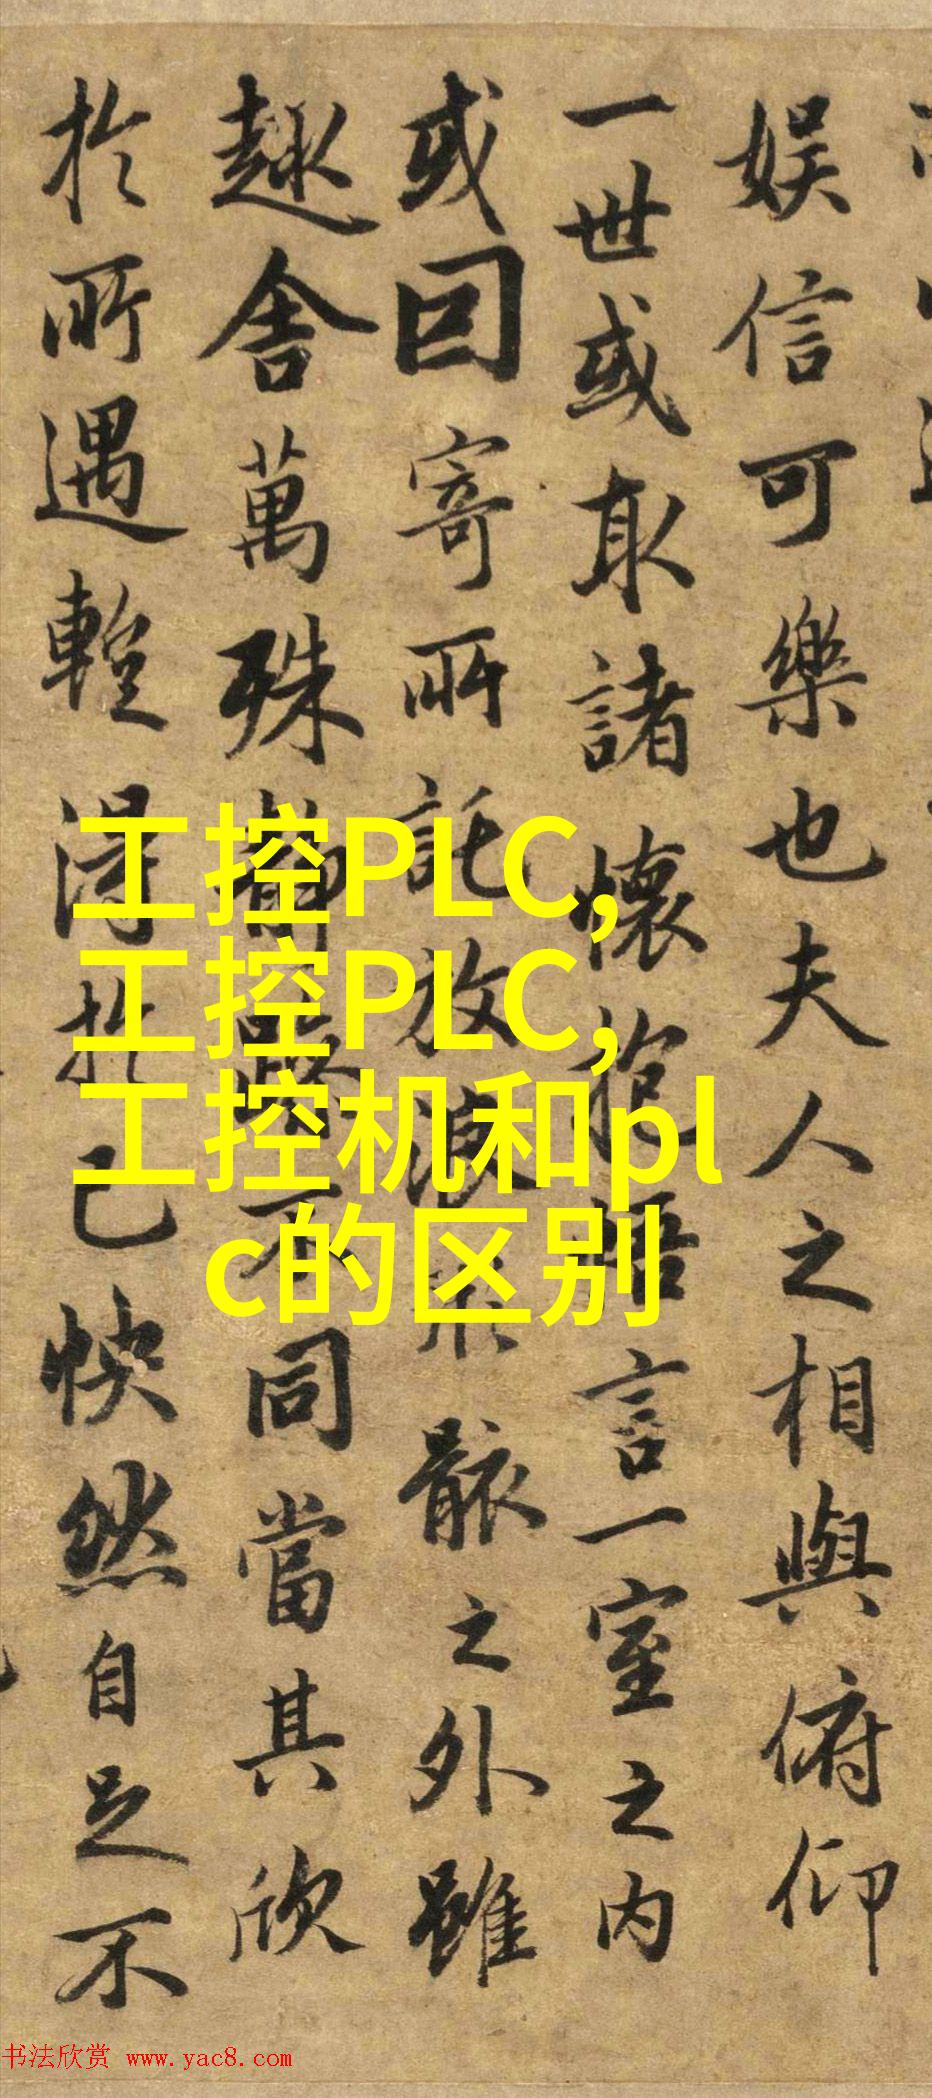 娛信可樂也夫人之相與俯仰
一世或取諸懷抱悟言一室之内
或因寄所託放浪形骸之外雖
趣舍萬殊靜躁不同當其欣
於所遇暫得於己快然自足不
工控PLC,
工控PLC,
工控机和pl
c的区别
书法欣赏 www.yac8.com